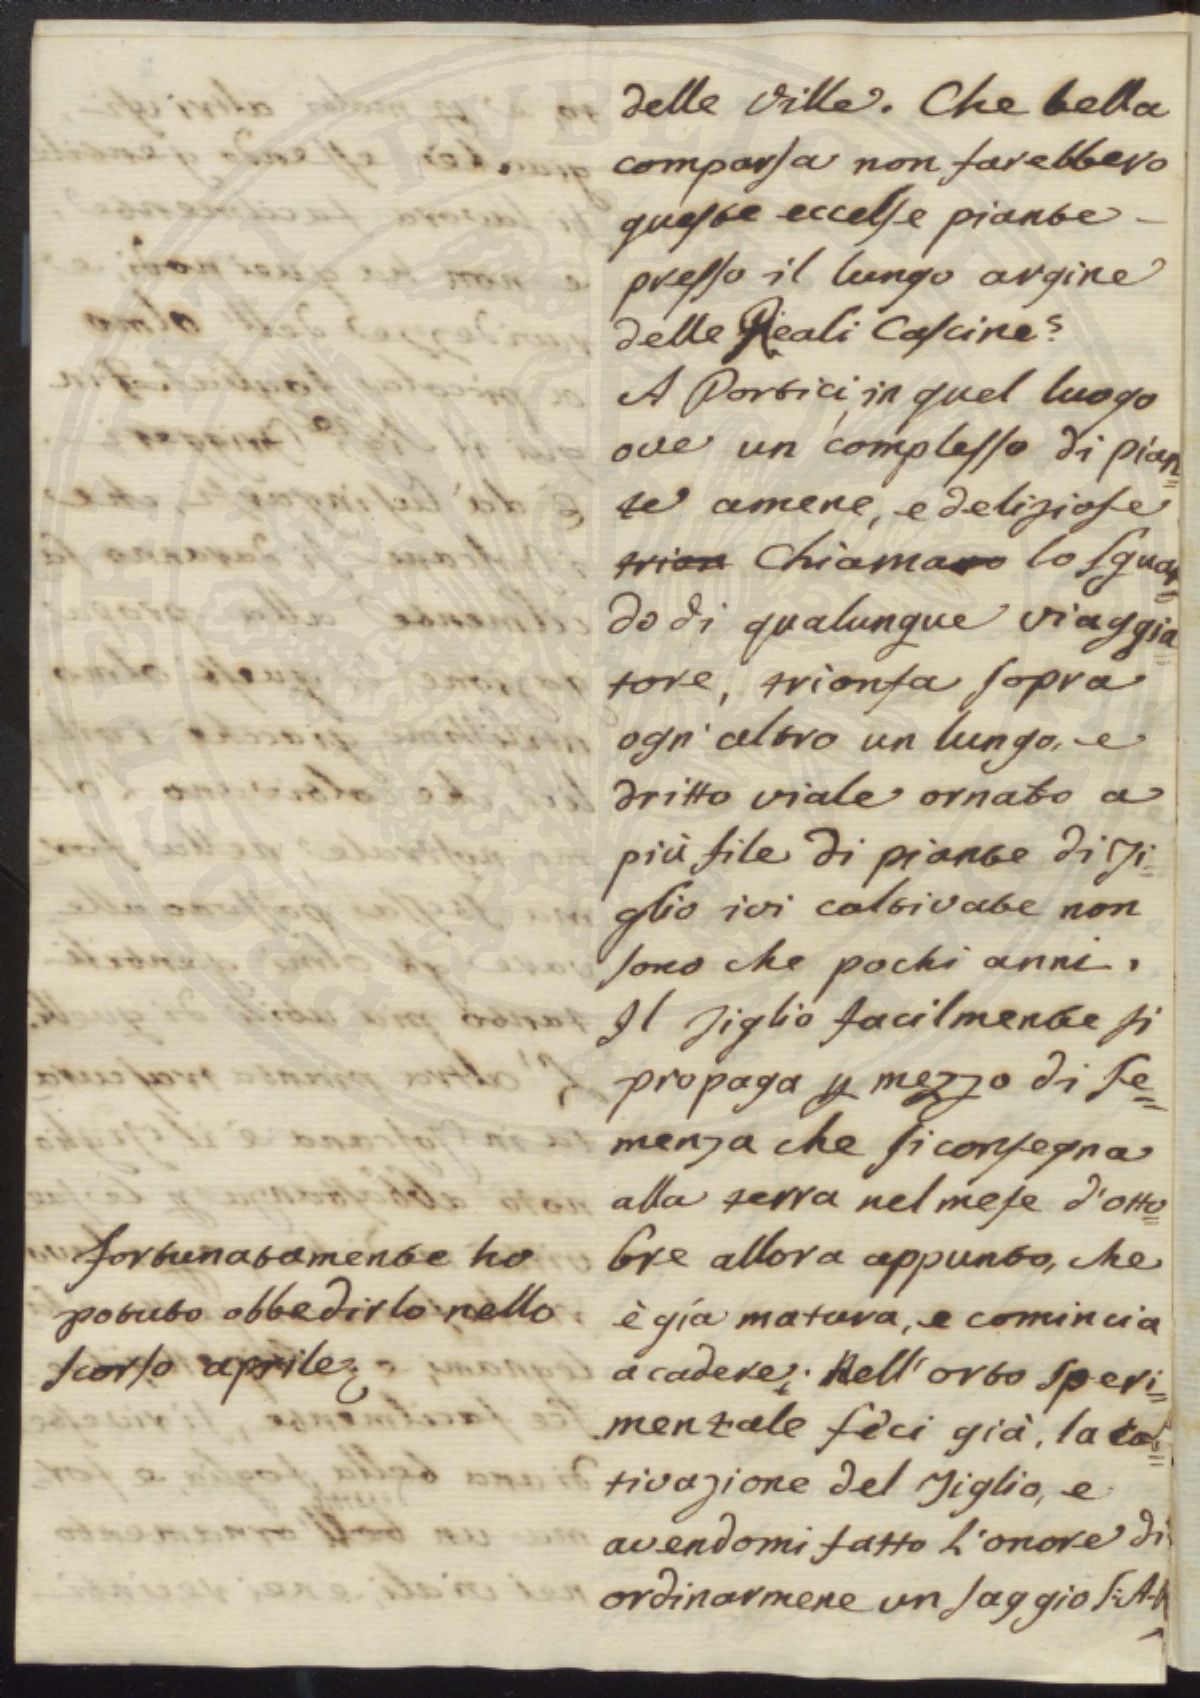 delle Ville. Che bella
comparsa non farebbero
queste eccelse piante
presso il lungo argine
delle Reali Cascine?
A Portici, in quel luogo
ove un complesso di pian=
te amene, e deliziose
trion chiamano lo sguar=
do di qualunque viaggia=
tore, trionfa sopra
ogn' altro un lungo, e
dritto viale ornato a
più file di piante di Ti=
glio ivi coltivate non
sono che pochi anni.
Il Tiglio facilmente si
propaga p mezzo di se=
menza che si consegna
alla terra nel mese d'otto=
bre allora appunto, che
è gía matura, e comincia
a cadere; Nell' orto speri=
mentale feci già, la col=
tivazione del Tiglio, e
avendomi fatto l'onore di
ordinarmene un saggio S: A: R
fortunatamente ho
potuto obbedirlo nello
scorso aprile;